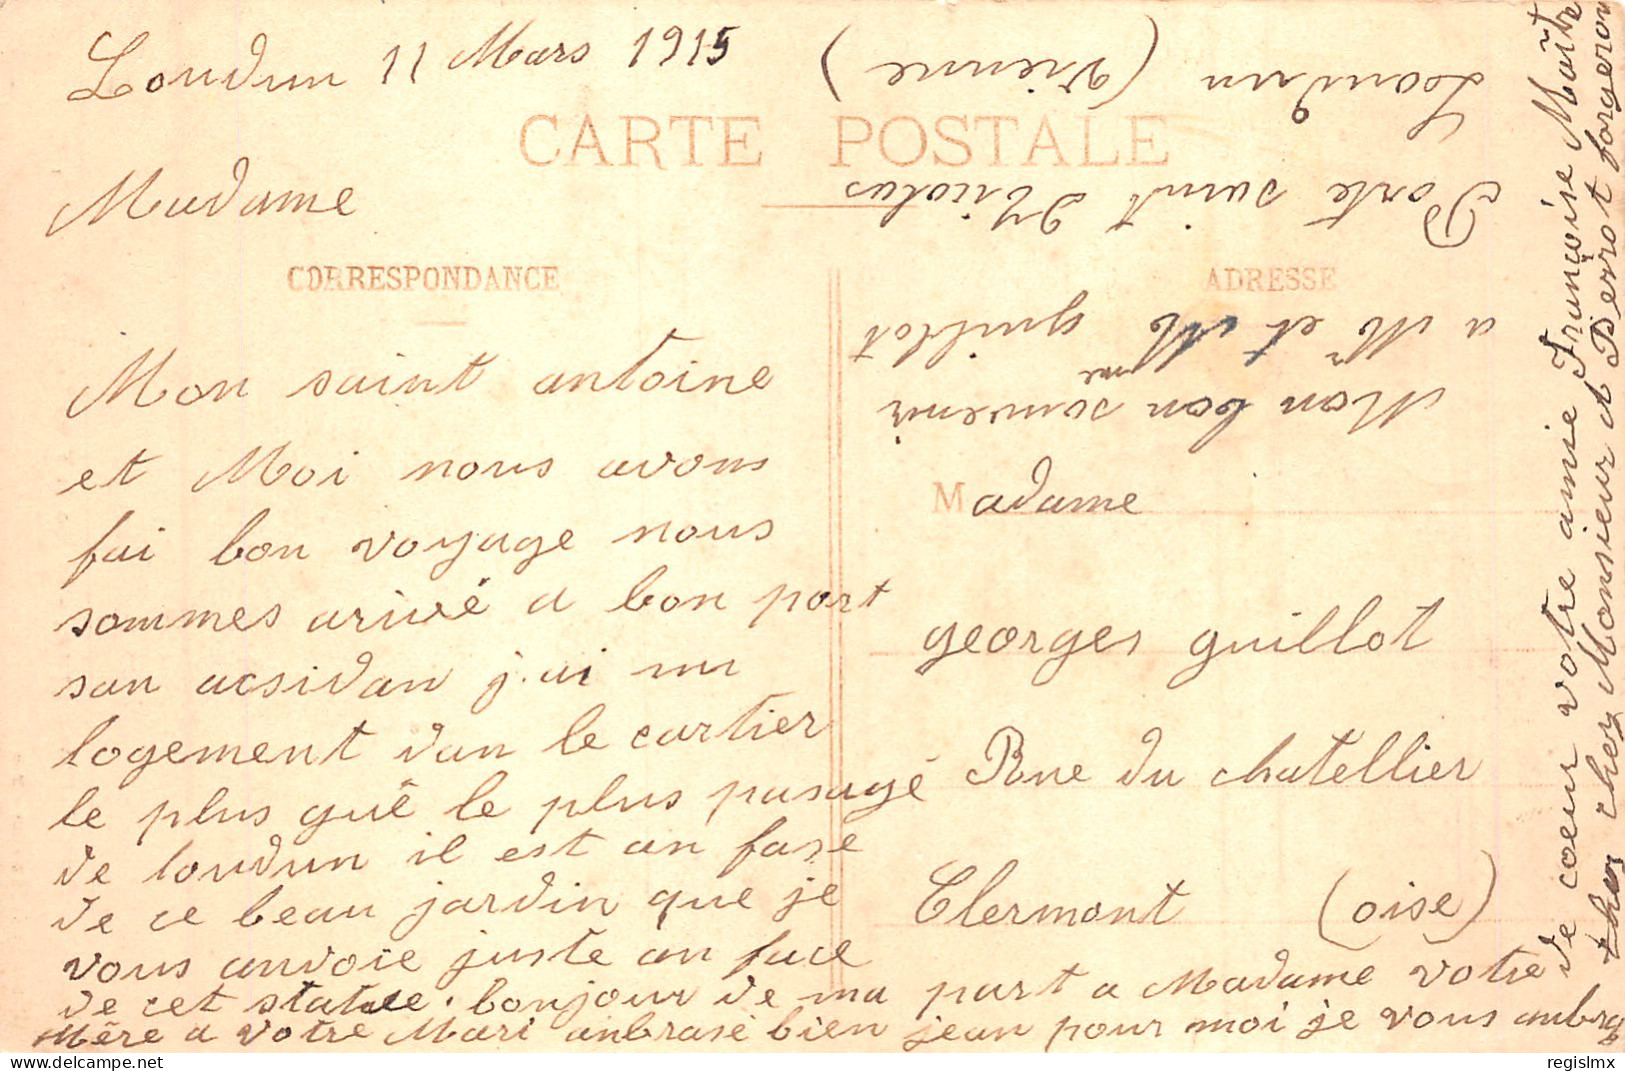 Loudun 11 Mars 1915
CARTE POSTALE
Madame
CORRESPONDANCE
Mon saint antoine
et Moi nous avons
fai bon voyage nous
sommes arivé a bon port
san acsidan j.ai un
logement dan le cartier
le plus gué le plus pasagé
de loudun il est an fase
de ce beau jardin que je
vous anvoie juste an face
de cet statue. bonjour de ma part a Madame votre
Mère a votre Mari anbrasé bien jean pour moi je vous anbras
de coeur votre amie Françoise Maitre
chez Monsieur d Perrot forgeron
Porte saint Nicolas
Loudun (Vienne)
Mon bon souvenir
a Mr et Mme guillot
ADRESSE
Madame
georges guillot
Rue du chatellier
Clermont (oise)
regislmx